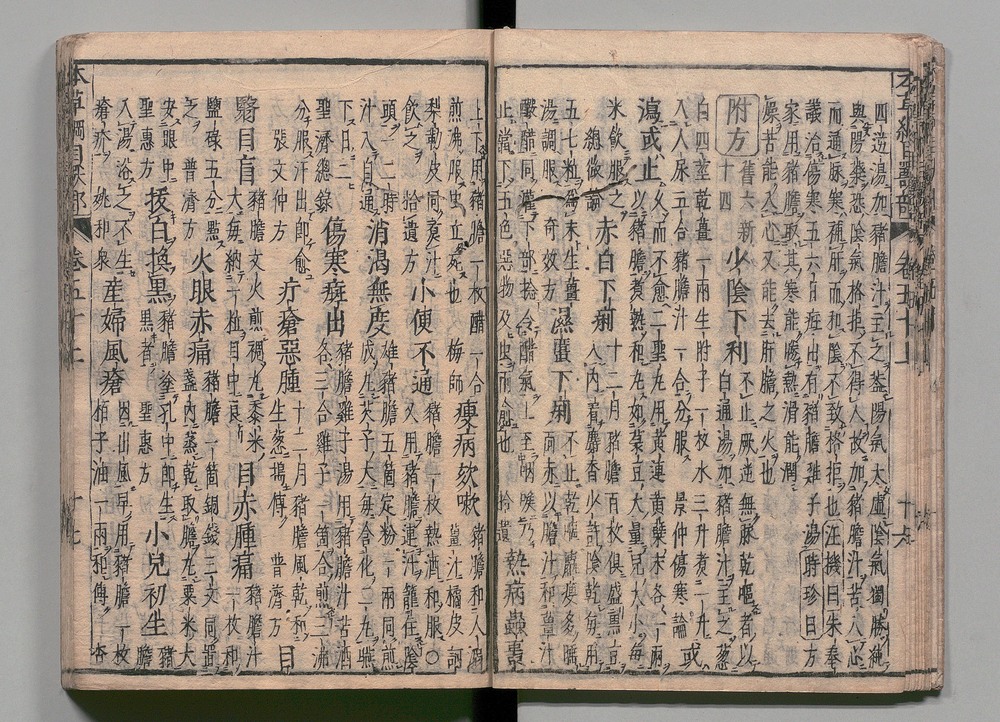 四逆湯加豬膽汁主之蓋陽氣太虛陰氣獨勝純
與陽藥恐陰氣格拒不得入故加豬膽汁苦入心
而通脉寒補肝而和陰不致格拒也汪機曰朱奉
議治傷寒五六日㾦出有豬膽雞子湯時珍曰方
家用豬膽取其寒能勝熱滑能潤
燥苦能入心又能去肝膽之火也
附方 舊六新十四 少陰下利 不止厥逆無脉乾嘔煩者以白通湯加豬膽汁主之葱
白四莖乾薑一兩生附子一枚水三升煮一升
入人尿五合豬膽汁一合分服 張仲景傷寒論 或
瀉或止 久而不愈二聖丸用黃連黃檗末各一兩以豬膽煮熟和丸如菉豆大量兒大小每
米飲服之 總微論 赤白下痢 十二月豬膽百枚俱盛黑豆
五七粒
湯調服 奇效方 濕䘌下痢 不止乾嘔羸瘦多睡面赤以膽汁和薑汁
釅醋同灌下部手急捻令醋氣上至咽喉乃
止當下五色惡物及虫而愈也 拾遺 熱病蟲䘌
上下用豬膽一枚醋一合
煎沸服虫立死也 梅師 瘦病欬嗽 豬膽和人溺薑汁橘皮訶
梨勒皮同煮汁 豬膽一枚熱酒和服○
飲之 拾遺方 小便不通 又用豬膽連汁籠住陰
頭一二時 消渴無度 雄豬膽五箇定粉一兩同煎
汁入自通 成丸芡子大每含化二丸嚥
下日二 聖濟總錄 傷寒㾦出 豬膽雞子湯用豬膽汁苦酒各三合雞子一箇合煎三沸
分服汗出即愈 張文仲方 疔瘡惡腫 十二月豬膽風乾和生葱搗傅 普濟方 目
翳目盲 豬膽文火煎稠丸黍米大每納一粒目中良 目赤腫痛 豬膽汁一枚和
鹽碌五分點 普濟方 火眼赤痛 豬膽一箇銅錢三文同置盞內蒸乾取膽丸粟米大
安眼中 聖惠方 拔白換黑 豬膽塗孔中即生黑者 聖惠方 小兒初生 豬膽
入湯浴之不生瘡疥 姚和眾 產婦風瘡 因出風早用豬膽一枚栢子油一兩和傅